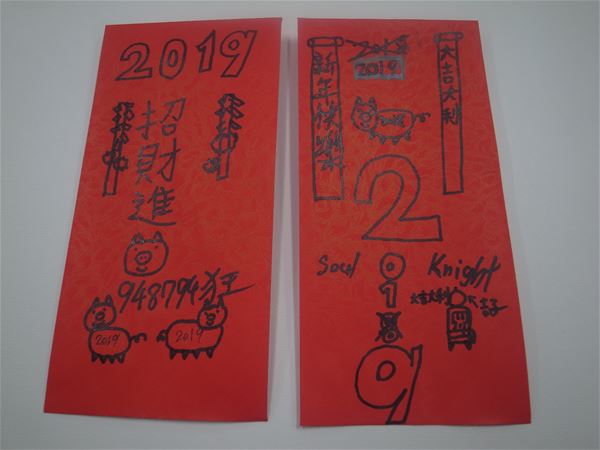 2019
招財進
948794狂
2019
2019
新年快樂
2019
大吉大利
2
Soul
Knight
0
1
大吉大利
9